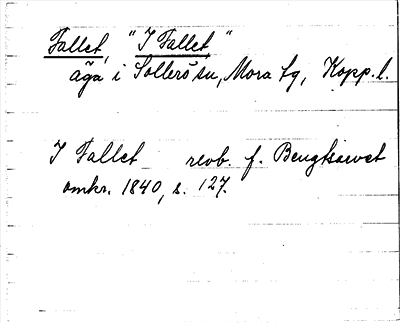 Fallet, "I Fallet"
äga i Sollerö sn, Mora tg, Kopp. l.
I Fallet revb. f. Bengtsarvet
omkr. 1840, s. 127.